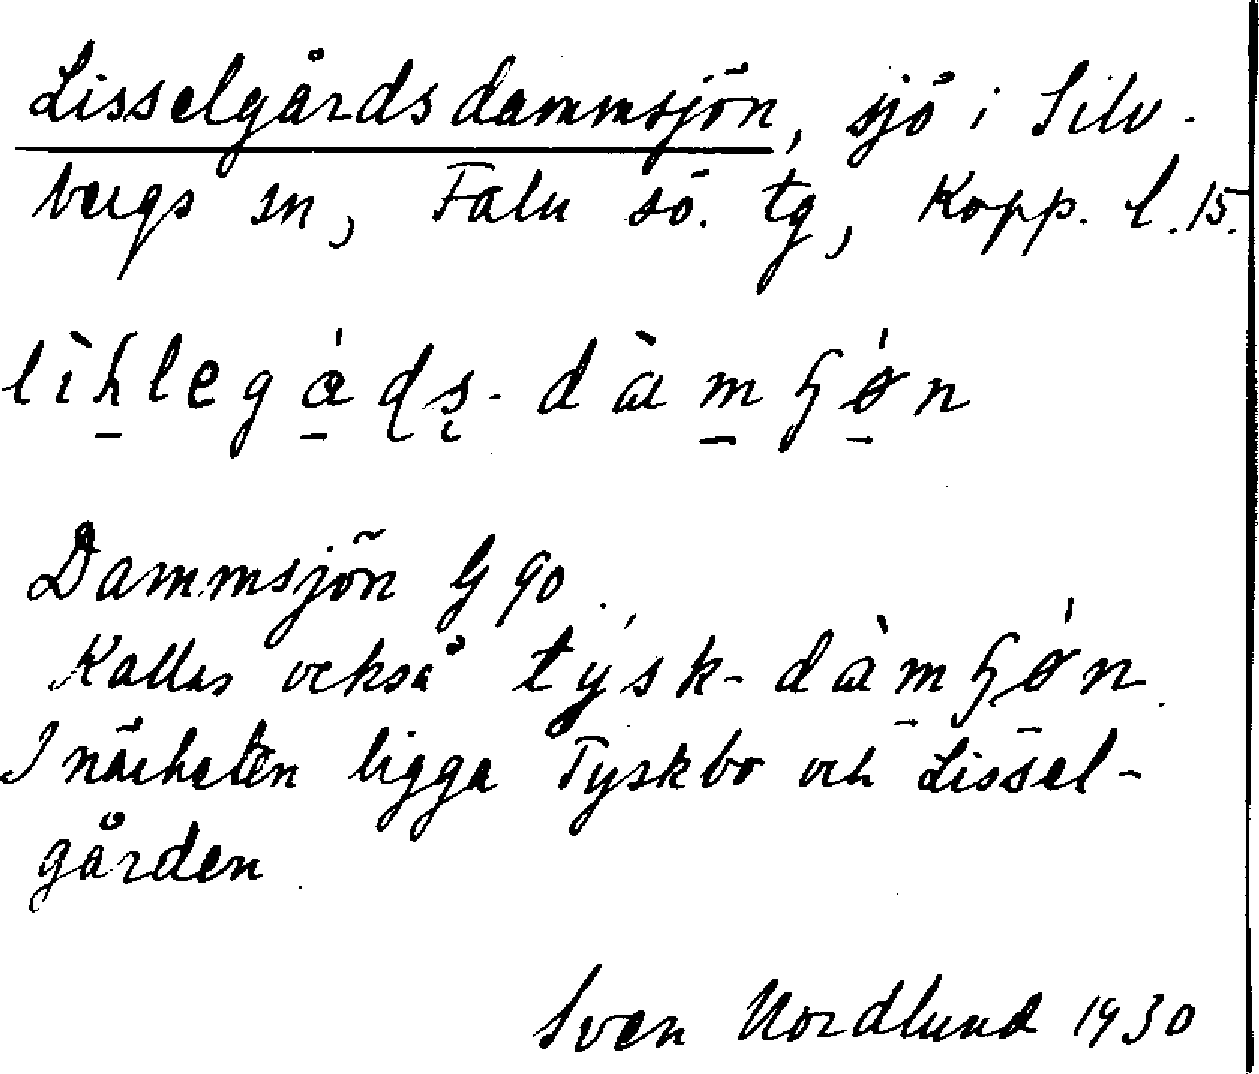 Lisselgårdsdammsjön, sjö i Silv-
bergs sn, Falu sö. tg, Kopp. l. 15.
lìhlegáds-dàmʃǿn
Dammsjön G 90.
Kallas också týsk-dàmʃǿn.
I närheten ligga Tyskbo och Lissel-
gården.
Sven Nordlund 1930